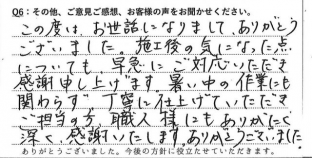 Q6:その他、ご意見ご感想、お客様の声をお聞かせください。
この度は、お世話になりまして、ありがとう
ございました。施工後の気になった点
についても、早急にご対応いただき
感謝申し上げます。暑い中の作業にも
関わらず、丁寧に仕上げていただき
ご担当の方、職人様にもありがたく
深く、感謝いたします。ありがとうございました
ありがとうございました。今後の方針に役立たせていただきます。